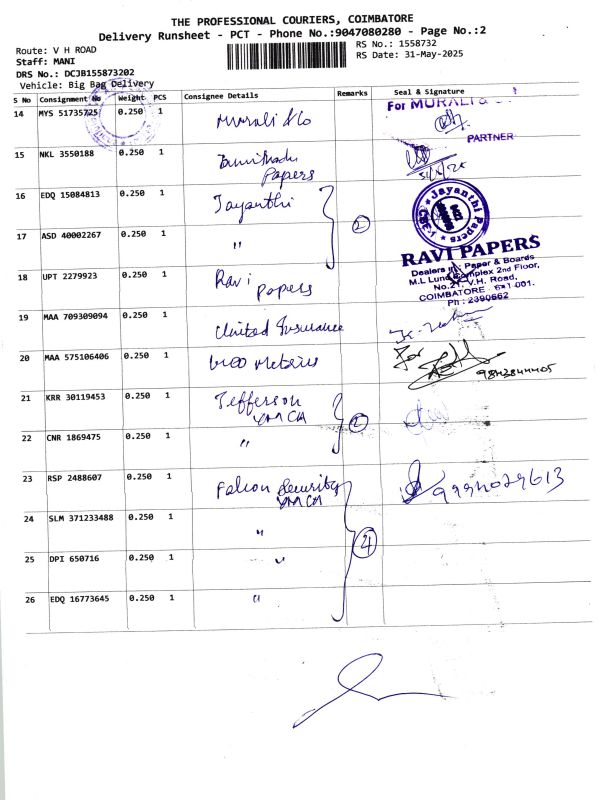 THE PROFESSIONAL COURIERS, COIMBATORE
Delivery Runsheet - PCT - Phone No.:9047080280 - Page No.:2
Route: V H ROAD
Staff: MANI
DRS No.: DCJB155873202
Vehicle: Big Bag Delivery
RS No.: 1558732
RS Date: 31-May-2025
S No Consignment No Weight PCS Consignee Details Remarks Seal & Signature
14 MYS 51735725 0.250 1 Murali & Co For MURALI &
PARTNER
15 NKL 3550188 0.250 1
Papers
16 EDQ 15084813 0.250 1 Jayanthi 2
Jayanthi Papers
CBE
17 ASD 40002267 0.250 1 "
18 UPT 2279923 0.250 1 Ravi
papers
RAVI PAPERS
Dealers in Paper & Boards
2nd Floor,
V.H. Road,
COIMBATORE - 641 001.
Ph : 2390662
19 MAA 709309094 0.250 1 United Insurance
20 MAA 575106406 0.250 1 For
21 KRR 30119453 0.250 1 Jefferson
YMCA
22 CNR 1869475 0.250 1 "
23 RSP 2488607 0.250 1 Falcon Security
YMCA
24 SLM 371233488 0.250 1 "
4
25 DPI 650716 0.250 1 "
26 EDQ 16773645 0.250 1 "